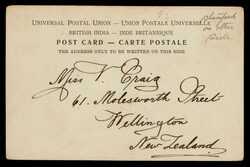 UNIVERSAL POSTAL UNION — UNION POSTALE UNIVERSELLE
BRITISH INDIA — INDE BRITANNIQUE
POST CARD — CARTE POSTALE
THE ADDRESS ONLY TO BE WRITTEN ON THIS SIDE
on other
Side
Miss V. Craig
61. Molesworth Street
Wellington
New Zealand